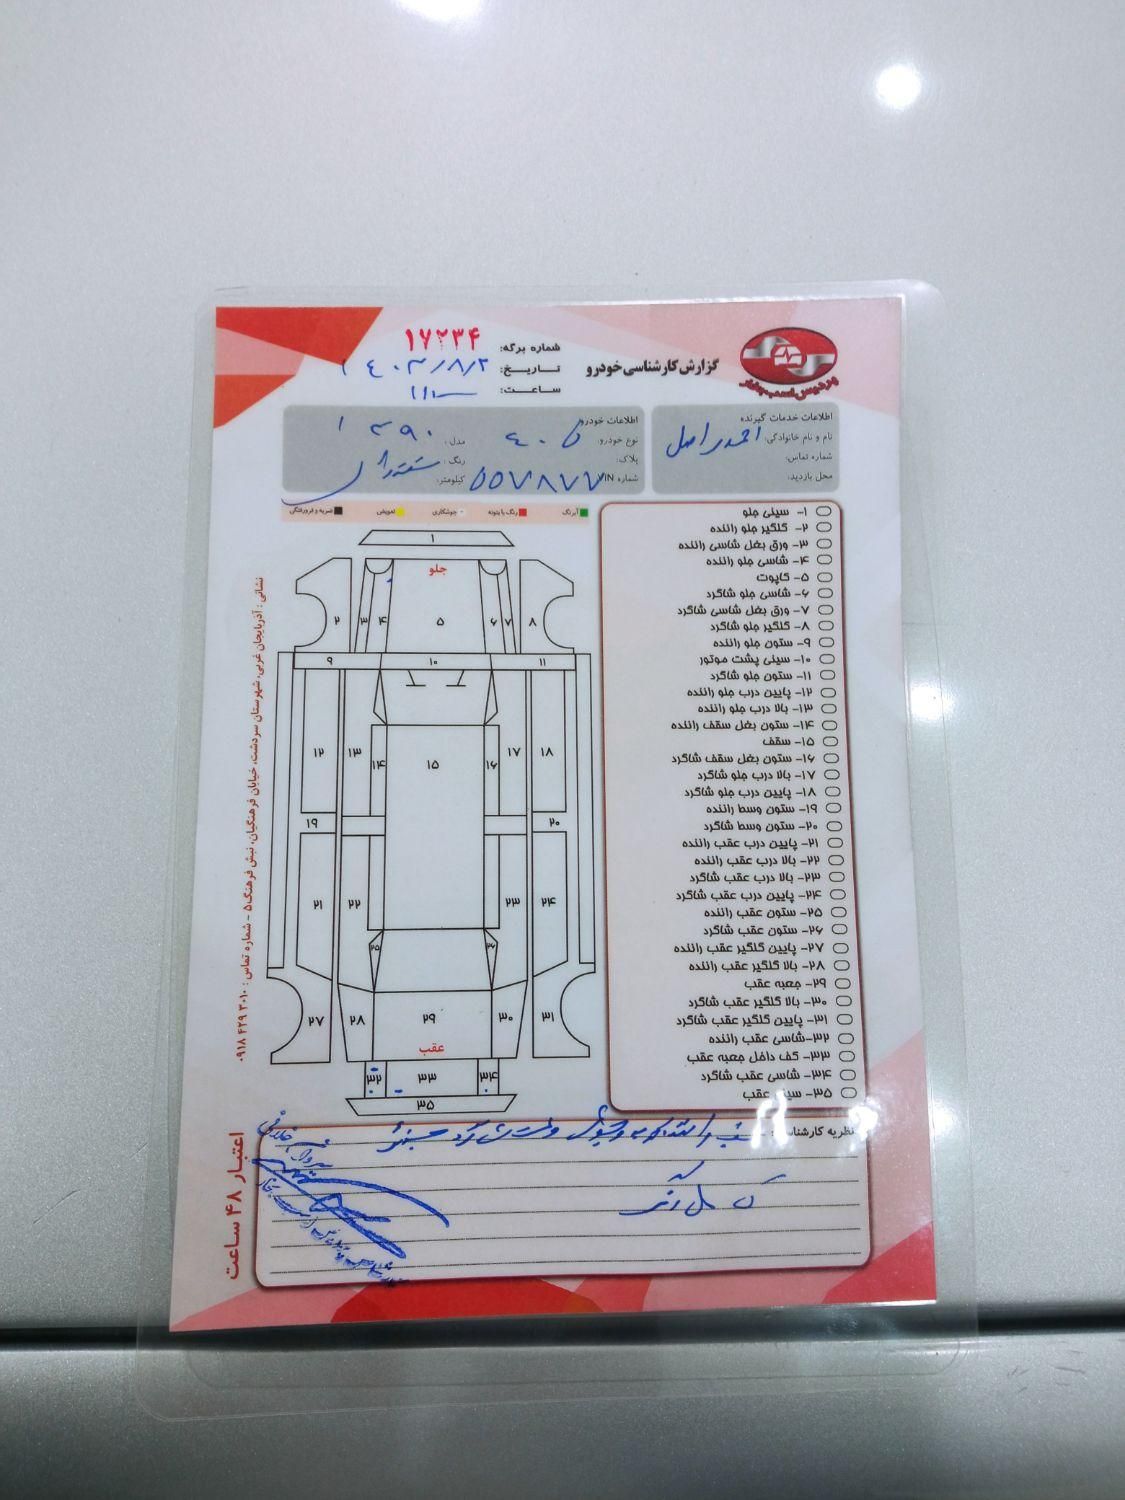 شماره برگه: ۱۷۲۳۴
گزارش کارشناسی خودرو
تاریخ: ۱۴۰۳/۸/۲
ساعت:
پردیس اسب بخار
اطلاعات خدمات گیرنده
نام و نام خانوادگی: احمد راصل
شماره تماس:
محل بازدید:
اطلاعات خودرو
نوع خودرو: ۴۰۵
مدل: ۱۳۹۰
پلاک:
رنگ:
شماره VIN ۵۵۷۸۷۷
کیلومتر:
آبرنگ
رنگ با بتونه
جوشکاری
تعویض
ضربه و فرورفتگی
۱- سینی جلو
۲- گلگیر جلو راننده
۳- ورق بغل شاسی راننده
۴- شاسی جلو راننده
۵- کاپوت
۶- شاسی جلو شاگرد
۷- ورق بغل شاسی شاگرد
۸- گلگیر جلو شاگرد
۹- ستون جلو راننده
۱۰- سینی پشت موتور
۱۱- ستون جلو شاگرد
۱۲- پایین درب جلو راننده
۱۳- بالا درب جلو راننده
۱۴- ستون بغل سقف راننده
۱۵- سقف
۱۶- ستون بغل سقف شاگرد
۱۷- بالا درب جلو شاگرد
۱۸- پایین درب جلو شاگرد
۱۹- ستون وسط راننده
۲۰- ستون وسط شاگرد
۲۱- پایین درب عقب راننده
۲۲- بالا درب عقب راننده
۲۳- بالا درب عقب شاگرد
۲۴- پایین درب عقب شاگرد
۲۵- ستون عقب راننده
۲۶- ستون عقب شاگرد
۲۷- پایین گلگیر عقب راننده
۲۸- بالا گلگیر عقب راننده
۲۹- جعبه عقب
۳۰- بالا گلگیر عقب شاگرد
۳۱- پایین گلگیر عقب شاگرد
۳۲- شاسی عقب راننده
۳۳- کف داخل جعبه عقب
۳۴- شاسی عقب شاگرد
۳۵- سینی عقب
۱
جلو
۲ ۳ ۴ ۵ ۶ ۷ ۸
۹ ۱۰ ۱۱
۱۲ ۱۳ ۱۴ ۱۵ ۱۶ ۱۷ ۱۸
۱۹ ۲۰
۲۱ ۲۲ ۲۳ ۲۴
۲۵ ۲۶
۲۷ ۲۸ ۲۹ ۳۰ ۳۱
عقب
۳۲ ۳۳ ۳۴
۳۵
نشانی: آذربایجان غربی، شهرستان سردشت، خیابان فرهنگیان، نبش فرهنگ ۵ - شماره تماس: ۳۰۱۰ ۴۲۹ ۰۹۱۸
نظریه کارشناس:
اعتبار ۴۸ ساعت